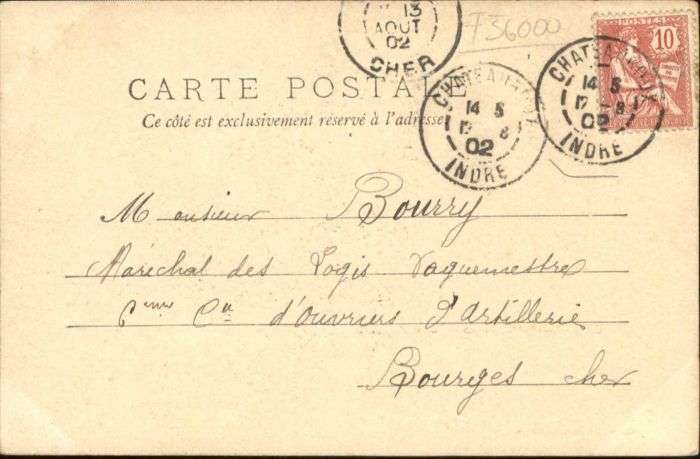 13
AOUT
02
CHER
T36000
POSTES
10
CARTE POSTALE
Ce côté est exclusivement réservé à l'adresse
CHATEAUROUX
14 5
12 8
02
INDRE
CHATEAUROUX
14 5
12 8
02
INDRE
Monsieur Bourry
Maréchal des Logis Vaguemestre
6eme Cie d'ouvriers d'artillerie
Bourges Cher